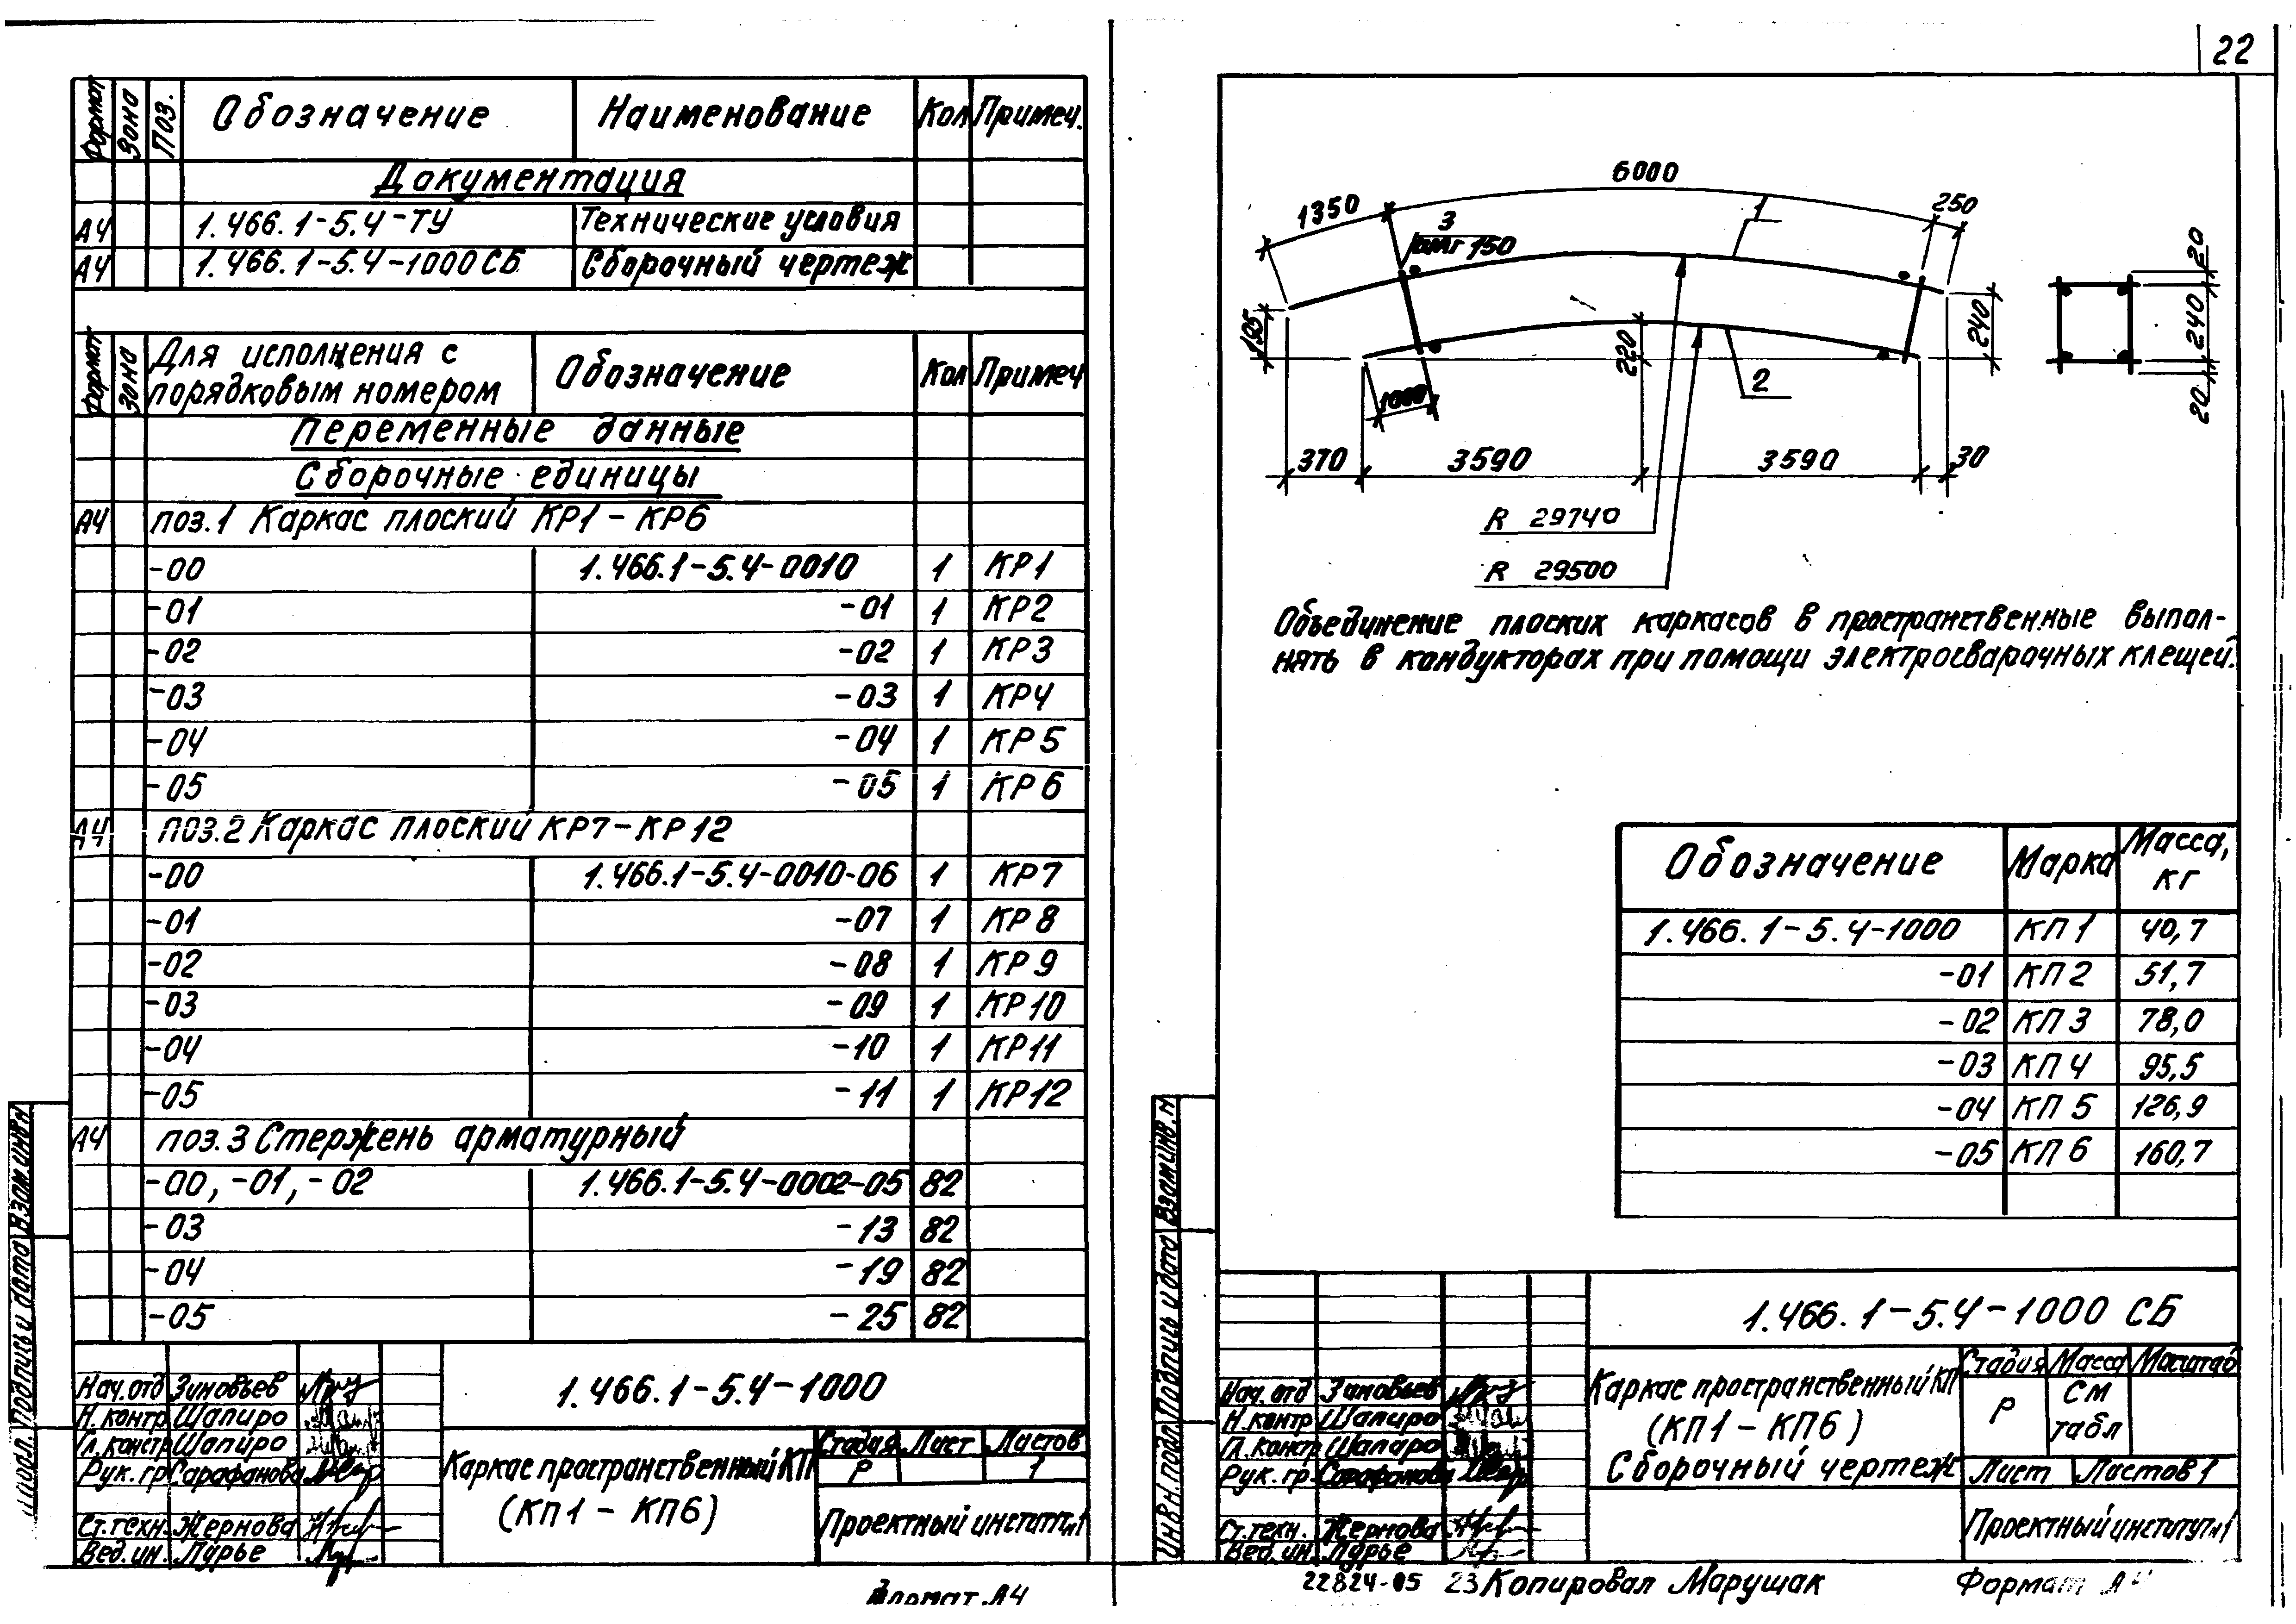 22
Формат Зона Поз. Обозначение Наименование Кол Примеч.
Документация
А4 1.466.1-5.4-ТУ Технические условия
А4 1.466.1-5.4-1000СБ Сборочный чертеж
Формат Зона Для исполнения с порядковым номером Обозначение Кол Примеч
Переменные данные
Сборочные единицы
А4 поз.1 Каркас плоский КР1-КР6
-00 1.466.1-5.4-0010 1 КР1
-01 -01 1 КР2
-02 -02 1 КР3
-03 -03 1 КР4
-04 -04 1 КР5
-05 -05 1 КР6
А4 поз.2 Каркас плоский КР7-КР12
-00 1.466.1-5.4-0010-06 1 КР7
-01 -07 1 КР8
-02 -08 1 КР9
-03 -09 1 КР10
-04 -10 1 КР11
-05 -11 1 КР12
А4 поз.3 Стержень арматурный
-00, -01, -02 1.466.1-5.4-0002-05 82
-03 -13 82
-04 -19 82
-05 -25 82
Подпись и дата Взам.инв.н
1.466.1-5.4-1000
Нач.отд Зиновьев
Н.контр Шапиро
Гл.констр Шапиро
Рук.гр Сарафанова
Ст.техн. Жернова
Вед.ин. Лурье
Каркас пространственный КП
(КП1-КП6)
Стадия Лист Листов
Р 1
Проектный институт №1
Формат А4
6000
1350
250
3
шаг 150
1
195
220
240
2
1000
370 3590 3590 30
R 29740
R 29500
20
240
20
Объединение плоских каркасов в пространственные выпол-
нять в кондукторах при помощи электросварочных клещей.
Обозначение Марка Масса, кг
1.466.1-5.4-1000 КП1 40,7
-01 КП2 51,7
-02 КП3 78,0
-03 КП4 95,5
-04 КП5 126,9
-05 КП6 160,7
Инв.н.подл. Подпись и дата Взам.инв.н
1.466.1-5.4-1000 СБ
Нач.отд Зиновьев
Н.контр Шапиро
Гл.констр Шапиро
Рук.гр. Сарафанова
Ст.техн. Жернова
Вед.ин. Лурье
Каркас пространственный КП
(КП1-КП6)
Сборочный чертеж
Стадия Масса Масштаб
Р См табл
Лист Листов 1
Проектный институт №1
22824-05 23 Копировал Марушак Формат А4